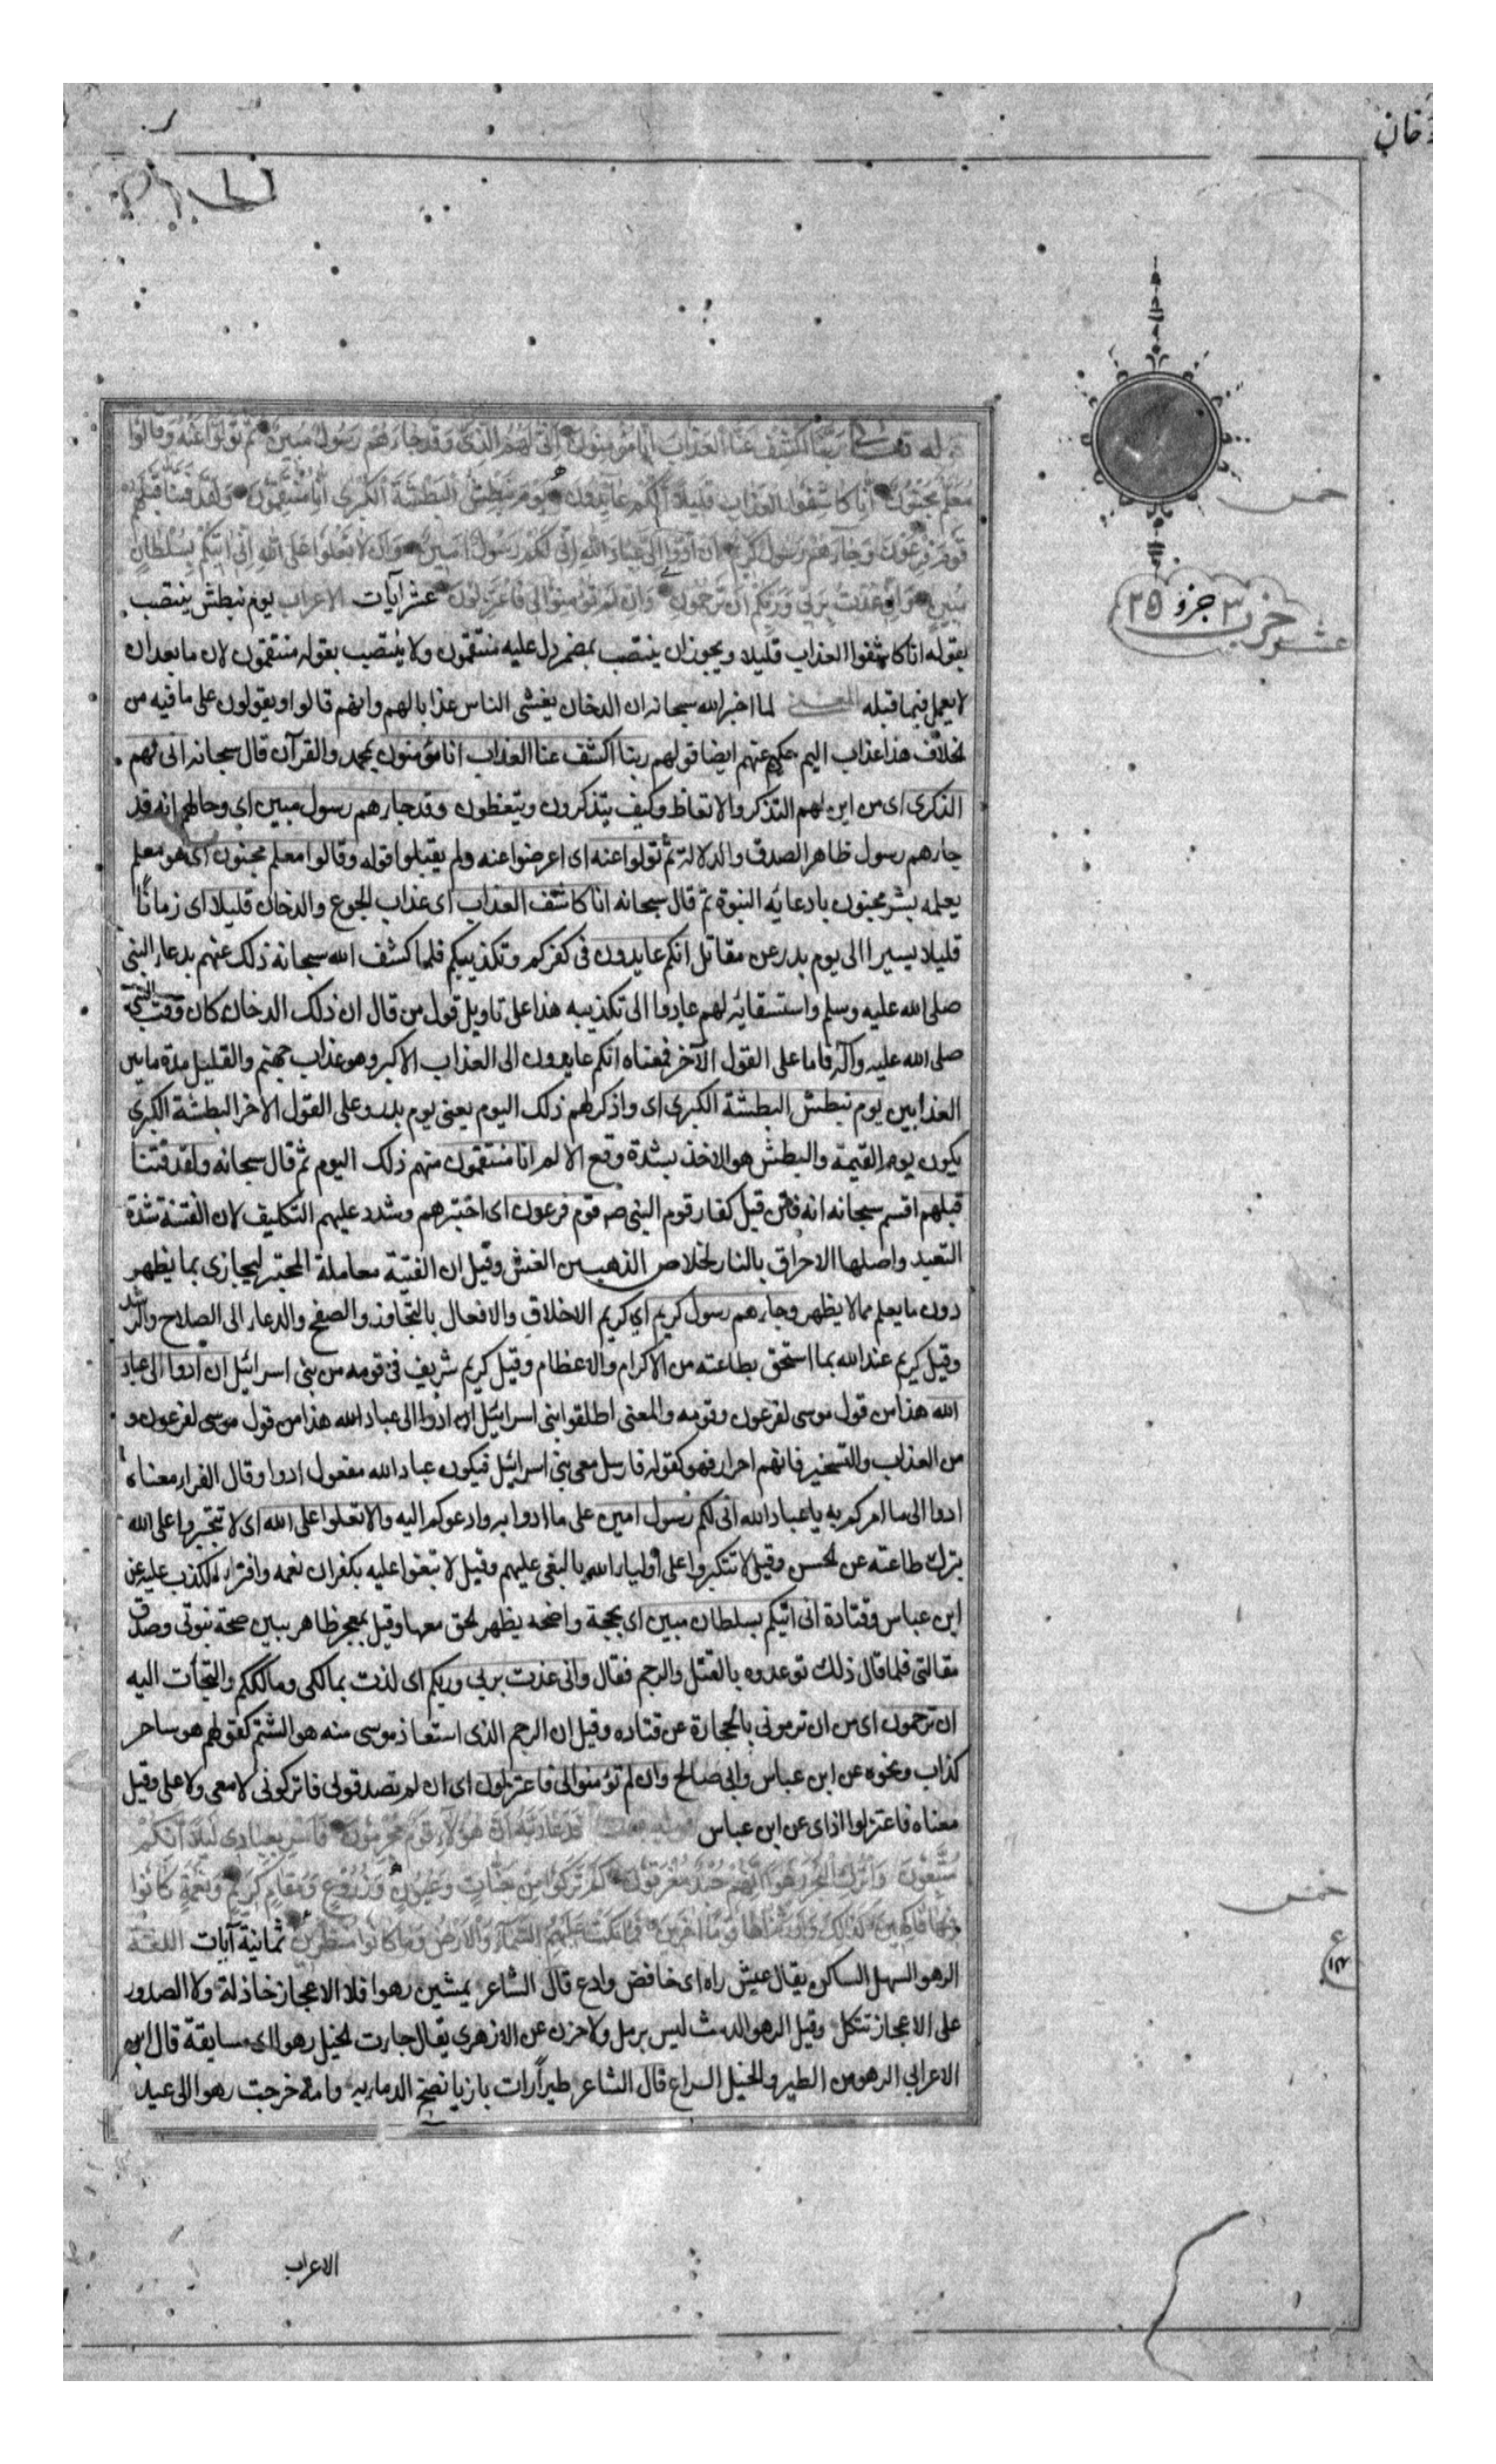 دخان
قوله تعالى رَبَّنَا اكْشِفْ عَنَّا الْعَذَابَ اِنَّا مُؤْمِنُونَ اَنّٰى لَهُمُ الذِّكْرٰى وَقَدْ جَاۤءَهُمْ رَسُولٌ مُبِينٌ ثُمَّ تَوَلَّوْا عَنْهُ وَقَالُوا
مُعَلَّمٌ مَجْنُونٌ اِنَّا كَاشِفُوا الْعَذَابِ قَلِيلًا اِنَّكُمْ عَاۤئِدُونَ يَوْمَ نَبْطِشُ الْبَطْشَةَ الْكُبْرٰى اِنَّا مُنْتَقِمُونَ وَلَقَدْ فَتَنَّا قَبْلَهُمْ
قَوْمَ فِرْعَوْنَ وَجَاۤءَهُمْ رَسُولٌ كَرِيمٌ اَنْ اَدُّوا اِلَيَّ عِبَادَ اللّٰهِ اِنِّى لَكُمْ رَسُولٌ اَمِينٌ وَاَنْ لَا تَعْلُوا عَلَى اللّٰهِ اِنِّى اٰتِيكُمْ بِسُلْطَانٍ
مُبِينٍ وَاِنِّى عُذْتُ بِرَبِّى وَرَبِّكُمْ اَنْ تَرْجُمُونِ وَاِنْ لَمْ تُؤْمِنُوا لِى فَاعْتَزِلُونِ عشر آيات الاعراب يوم نبطش ينتصب
بقوله انا كاشفوا العذاب قليلا ويجوز ان ينتصب بمضمر دل عليه منتقمون ولا ينتصب بقوله منتقمون لان ما بعد ان
لا يعمل فيما قبله المعنى لما اخبر الله سبحانه ان الدخان يغشى الناس عذابا لهم وانهم قالوا او يقولون على ما فيه من
الخلاف هذا عذاب اليم حكى عنهم ايضا قولهم ربنا اكشف عنا العذاب انا مؤمنون بمحمد والقرآن قال سبحانه انى لهم
الذكرى اى من اين لهم التذكر والاتعاظ وكيف يتذكرون ويتعظون وقد جاءهم رسول مبين اي وحالهم انه قد
جاءهم رسول ظاهر الصدق والدلالة ثم تولوا عنه اى اعرضوا عنه ولم يقبلوا قوله وقالوا معلم مجنون اى هو معلم
يعلمه بشر مجنون بادعائه النبوة ثم قال سبحانه انا كاشف العذاب اى عذاب الجوع والدخان قليلا اى زمانًا
قليلا يسيرا الى يوم بدر عن مقاتل انكم عايدون فى كفركم وتكذيبكم فلما كشف الله سبحانه ذلك عنهم بدعاء النبى
صلى الله عليه وسلم واستسقائه لهم عادوا الى تكذيبه هذا على تاويل قول من قال ان ذلك الدخان كان وقت النبى
صلى الله عليه وآله فاما على القول الآخر فمعناه انكم عايدون الى العذاب الاكبر وهو عذاب جهنم والقليل مدة ما بين
العذابين يوم نبطش البطشة الكبرى اى واذكر لهم ذلك اليوم يعنى يوم بدر وعلى القول الآخر البطشة الكبرى
يكون يوم القيمة والبطش هو الاخذ بشدة وقع الالم انا منتقمون منهم ذلك اليوم ثم قال سبحانه ولقد فتنا
قبلهم اقسم سبحانه انه فتن قبل كفار قوم النبى ص قوم فرعون اى اختبرهم وشدد عليهم التكليف لان الفتنة شدة
التعبد واصلها الاحراق بالنار لخلاص الذهب من الغش وقيل ان الفتنة معاملة المختبر ليجازى بما يظهر
دون ما يعلم مما لا يظهر وجاءهم رسول كريم اي كريم الاخلاق والافعال بالتجاوز والصفح والدعاء الى الصلاح والرشد
وقيل كريم عند الله بما استحق بطاعته من الاكرام والاعظام وقيل كريم شريف فى قومه من بنى اسرائيل ان ادوا الى عباد
الله هذا من قول موسى لفرعون وقومه والمعنى اطلقوا بنى اسرائيل ان ادوا الى عباد الله هذا من قول موسى لفرعون و
من العذاب والتسخير فانهم احرار فهو كقوله فارسل معى بنى اسرائيل فيكون عباد الله مفعول ادوا وقال الفراء معناه
ادوا الى ما امركم به يا عباد الله انى لكم رسول امين على ما ادوا به وادعوكم اليه والا تعلوا على الله اى لا تتجبروا على الله
بترك طاعته عن الحسن وقيل لا تتكبروا على أولياء الله بالبغى عليهم وقيل لا تبغوا عليه بكفران نعمه وافتراء الكذب عليه عن
ابن عباس وقتادة انى اتيكم بسلطان مبين اى بحجة واضحه يظهر الحق معها وقيل بمعجز ظاهر يبين صحة نبوتى وصدق
مقالتى فلما قال ذلك توعدوه بالقتل والرجم فقال وانى عذت بربى وربكم اى لذت بمالكى ومالككم والتجأت اليه
ان ترجمون اى من ان ترمونى بالحجارة عن قتاده وقيل ان الرجم الذى استعاذ موسى منه هو الشتم كقولهم هو ساحر
كذاب ونحوه عن ابن عباس وابى صالح وان لم تؤمنوا لى فاعتزلون اى ان لم تصدقونى فاتركونى لا معى ولا على وقيل
معناه فاعتزلوا اذاى عن ابن عباس قوله تعالى فَدَعَا رَبَّهُ اَنَّ هٰؤُلَاۤءِ قَوْمٌ مُجْرِمُونَ فَاَسْرِ بِعِبَادِى لَيْلًا اِنَّكُمْ
مُتَّبَعُونَ وَاتْرُكِ الْبَحْرَ رَهْوًا اِنَّهُمْ جُنْدٌ مُغْرَقُونَ كَمْ تَرَكُوا مِنْ جَنَّاتٍ وَعُيُونٍ وَزُرُوعٍ وَمَقَامٍ كَرِيمٍ وَنَعْمَةٍ كَانُوا
فِيهَا فَاكِهِينَ كَذٰلِكَ وَاَوْرَثْنَاهَا قَوْمًا اٰخَرِينَ فَمَا بَكَتْ عَلَيْهِمُ السَّمَاۤءُ وَالْاَرْضُ وَمَا كَانُوا مُنْظَرِينَ ثمانية آيات اللغة
الرهو السهل الساكن يقال عيش راه اى خافض وادع قال الشاعر يمشين رهوا فلا الاعجاز خاذلة ولا الصدور
على الاعجاز تتكل وقيل الرهو الدمث ليس برمل ولا حزن عن الازهرى يقال جاءت الخيل رهوا اى متتابعة قال ابن
الاعرابى الرهو من الطير والخيل السراع قال الشاعر طيرًا رات بازيا نضح الدماء به وامة خرجت رهوا الى عيد
خمس
حزب ٣ جزو ٢٥
عشر
خمس
ع
الاعراب